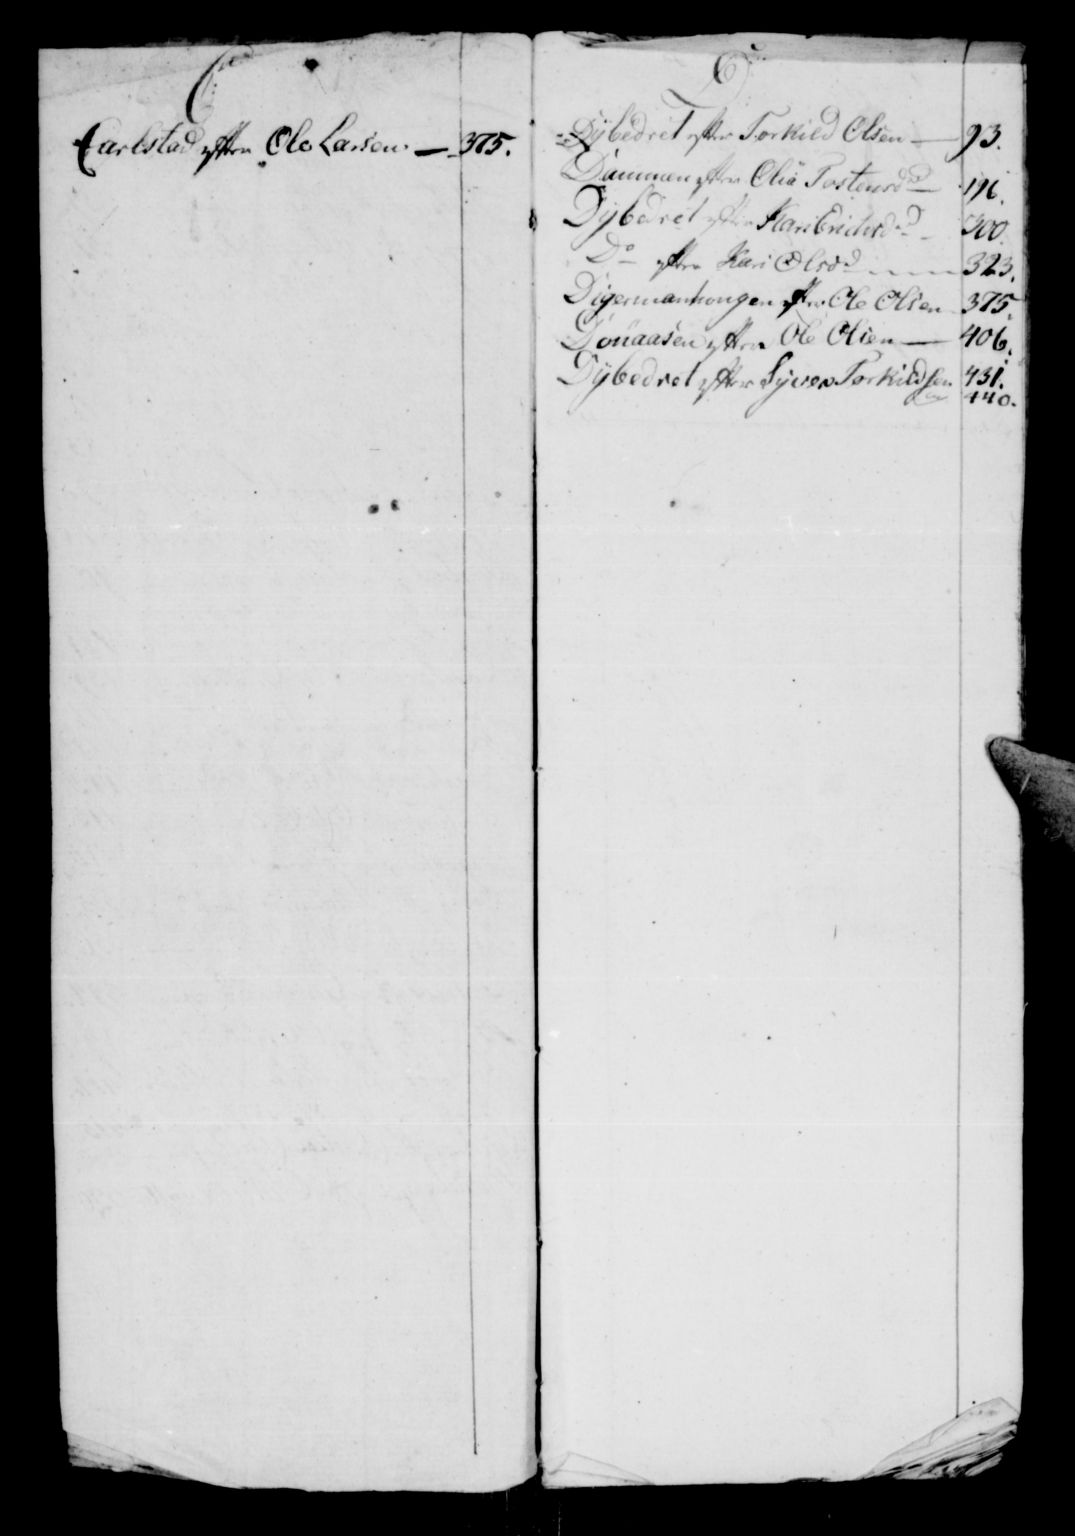 C
Carlstad efter Ole Larsen. — 375.
D
Dybedret efter Torkild Olsen — 93.
Dammen efter Olia Tostensdr — 196.
Dybedret efter Kari Erichsd. — 300.
Do efter Kari Olsd — 323.
Digermanhougen efter Ole Olsen 375.
efter Ole Olsen — 406.
Dybedret efter Syver Torkildsen 431.
440.